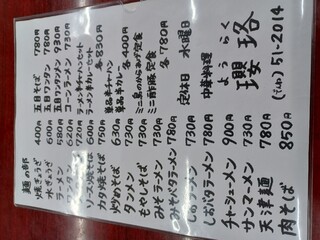 麺の部
焼ぎょうざ 400円
水ぎょうざ 600円
ラーメン 580円
ワンタン 620円
720円
ソース焼そば 600円
カタ焼そば 650円
炒めそば 750円
タンメン 630円
もやしそば 730円
みそラーメン 730円
みそバタラーメン 780円
730円
しおバタラーメン 780円
チャーシューメン 900円
サンマーメン 730円
天津麺 780円
肉そば 850円
五目そば 780円
五目ワンタン 780円
五目ワンタンメン 930円
コーンラーメン 730円
ラーメン半チャーハンセット
ラーメン半カレーセット
各830円
単品半チャーハン
単品半カレー
各400円
ミニ鳥のからあげ定食
ミニ酢豚定食
各780円
定休日 水曜日
中華料理
ようらく
瓔珞
51-2014